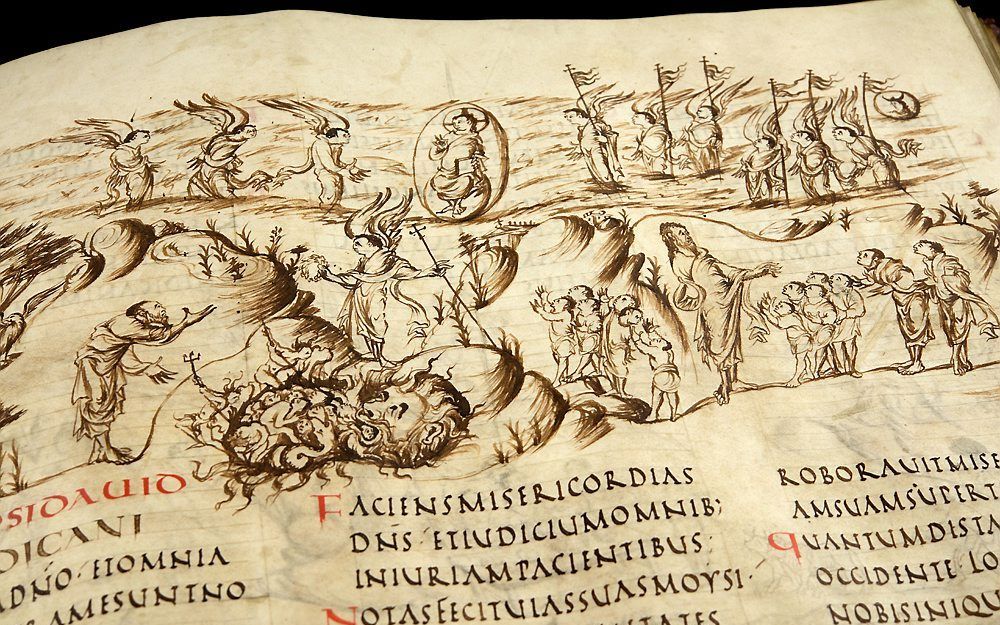 PSIDAUID
DICANI
ADNO·ETOMNIA
RAMESUNTNO
FACIENSMISERICORDIAS
DNS·ETIUDICIUMOMNIB;
INIURIAMPACIENTIBUS:
NOTASFECITUIASSUASMOYSI·
TATES
ROBORAUITMISE
AMSUAMSUPERT
QUANTUMDISTA
OCCIDENTE·LO
NOBISINIQU